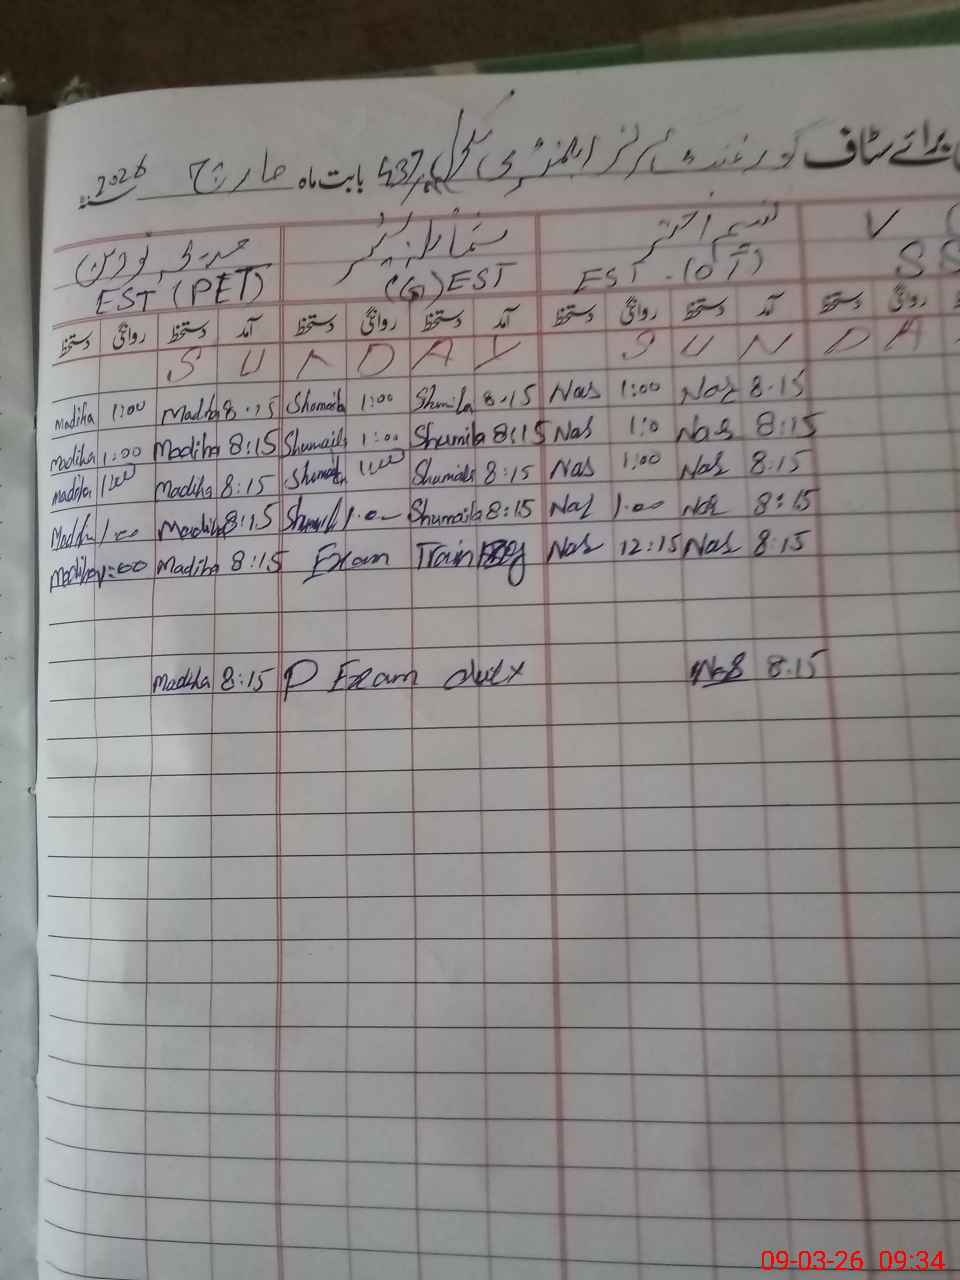 برائے سٹاف گورنمنٹ گرلز ایلیمنٹری سکول 437 بابت ماہ مارچ 2026
نسیم اختر شمائلہ کنیز مدیحہ نورین
V EST (OT) EST (G) EST (PET)
دستخط روانگی دستخط آمد دستخط روانگی دستخط آمد دستخط روانگی دستخط آمد
S U N D A Y S U N D A
Madiha 1:00 Madiha 8:15 Shumaila 1:00 Shumila 8:15 Nas 1:00 Nas 8:15
Madiha 1:00 Madiha 8:15 Shumaila 1:00 Shumila 8:15 Nas 1:0 Nas 8:15
Madiha 1:00 Madiha 8:15 Shumaila 1:00 Shumaila 8:15 Nas 1:00 Nas 8:15
Madiha 1:00 Madiha 8:15 Shumaila 1:00 Shumaila 8:15 Nas 1:00 Nas 8:15
Madiha 1:00 Madiha 8:15 Exam Training Nas 12:15 Nas 8:15
Madiha 8:15 P Exam duty Nas 8:15
09-03-26 09:34